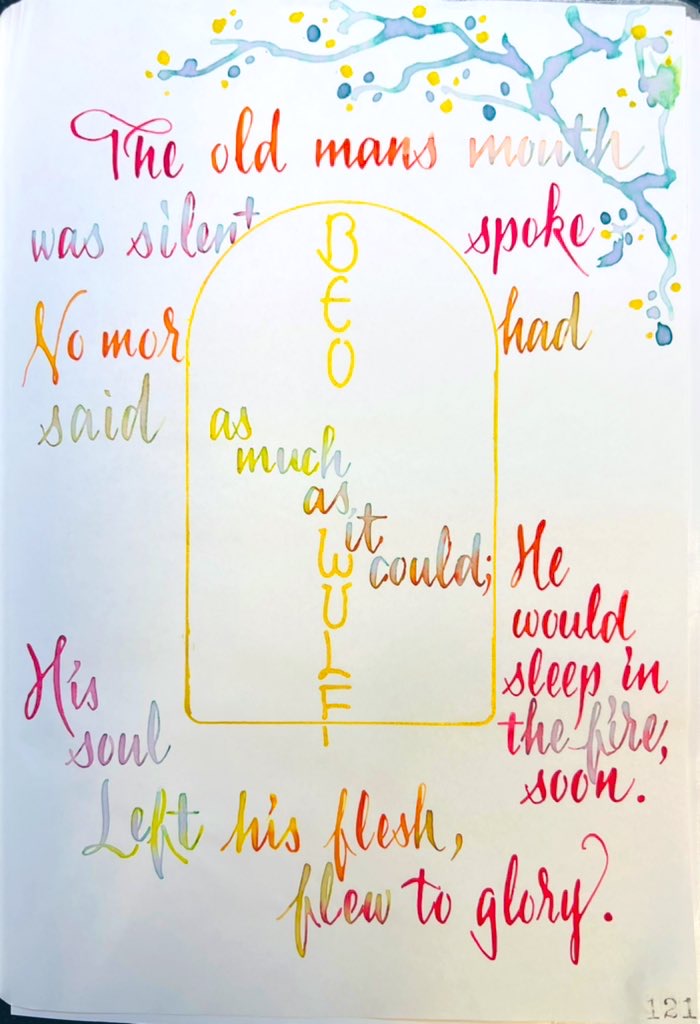 The old mans mouth
was silent spoke
No mor had
said as
much
as
it
could; He
would
sleep in
the fire,
soon.
His
soul
Left his flesh,
flew to glory.
BEO
WULF
121